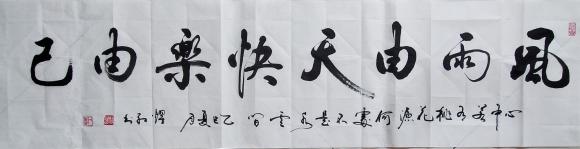 風雨由天快樂由己
心中若有桃花源何處不是水雲間乙巳夏月